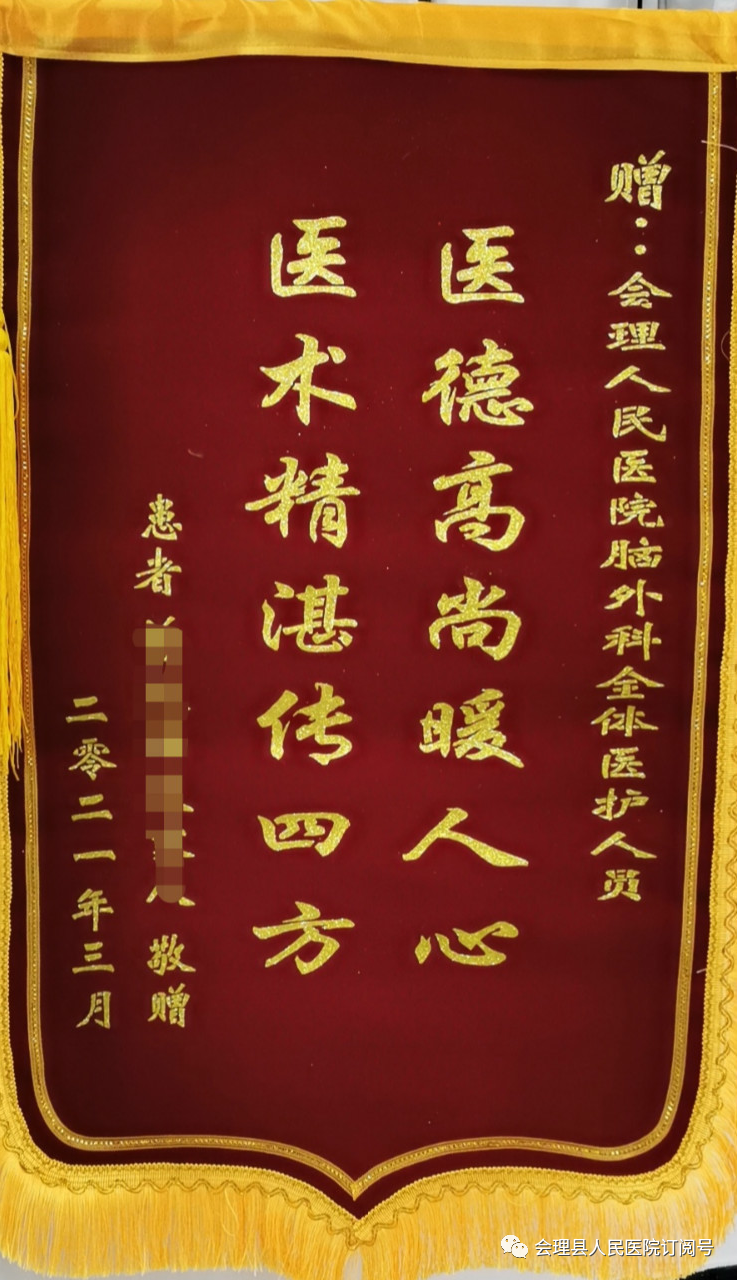 赠:会理人民医院脑外科全体医护人员
医德高尚暖人心
医术精湛传四方
患者
敬赠
二零二一年三月
会理县人民医院订阅号